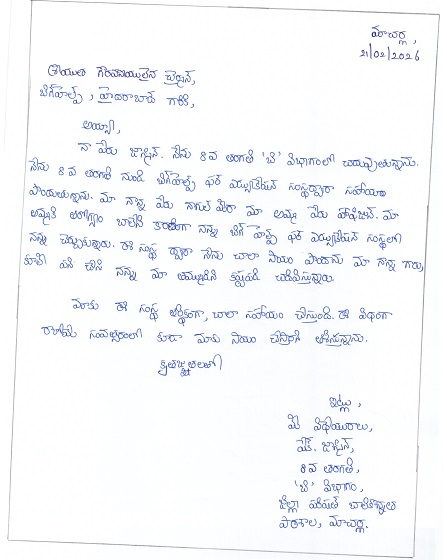 మాచర్ల,
21/02/2026
గౌరవనీయులైన
బిగ్‌హెల్ప్, హైదరాబాద్ గారికి,
అయ్యా,
నా పేరు జాస్మిన్. నేను 8వ తరగతి 'బి' విభాగంలో చదువుతున్నాను.
నేను 8వ తరగతి నుండి బిగ్‌హెల్ప్ ఫర్ ఎడ్యుకేషన్ సంస్థద్వారా సహాయం
పొందుతున్నాను. మా నాన్న పేరు నాగుల్ మీరా మా అమ్మ పేరు మా
అమ్మకి ఆరోగ్యం బాలేని కారణంగా నన్ను బిగ్ హెల్ప్ ఫర్ ఎడ్యుకేషన్ సంస్థలో
నన్ను చేర్పించారు. ఈ సంస్థ ద్వారా నేను చాలా సాయం పొందాను మా నాన్న గారు,
కూలి పని చేసి నన్ను మా కష్టపడి చదివిస్తున్నారు.
మాకు ఈ సంస్థ ఆర్థికంగా, చాలా సహాయం చేస్తుంది. ఈ విధంగా
రాబోయే సంవత్సరంలో కూడా మాకు సాయం చేస్తారని ఆశిస్తున్నాను.
కృతజ్ఞతలతో
ఇట్లు,
మీ విధేయురాలు,
షేక్. జాస్మిన్,
8వ తరగతి,
'బి' విభాగం,
జిల్లా పరిషత్ బాలికోన్నత
పాఠశాల, మాచర్ల.